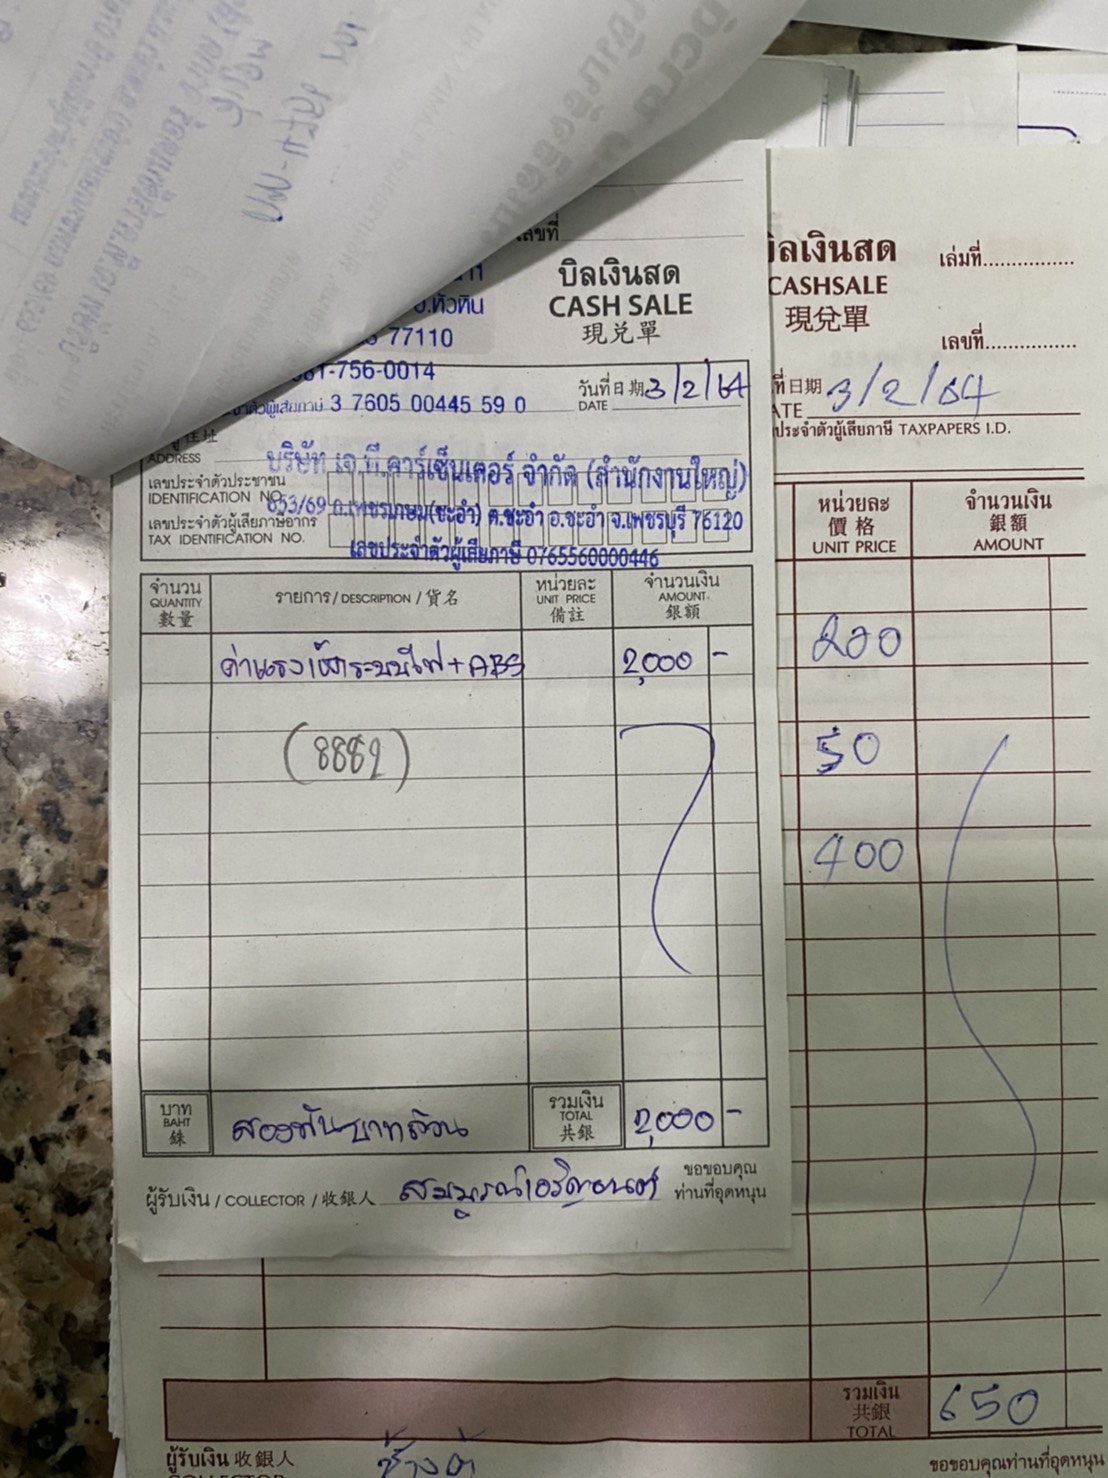 เลขที่
บิลเงินสด
CASH SALE
現兌單
อ.หัวหิน
77110
081-756-0014
วันที่ 日期 3/2/64
DATE
3 7605 00445 59 0
ADDRESS
บริษัท เจ.พี.คาร์เซ็นเตอร์ จำกัด (สำนักงานใหญ่)
เลขประจำตัวประชาชน
IDENTIFICATION NO.
853/69 ถ.เพชรเกษม(ชะอำ) ต.ชะอำ อ.ชะอำ จ.เพชรบุรี 76120
เลขประจำตัวผู้เสียภาษีอากร
TAX IDENTIFICATION NO.
เลขประจำตัวผู้เสียภาษี 0765560000446
จำนวน
QUANTITY
數量
รายการ / DESCRIPTION / 貨名
หน่วยละ
UNIT PRICE
備註
จำนวนเงิน
AMOUNT
銀額
ค่าแรงเช็คระบบไฟ + ABS 2,000 -
(8882)
บาท
BAHT
銖
สองพันบาทถ้วน
รวมเงิน
TOTAL
共銀
2,000 -
ผู้รับเงิน / COLLECTOR / 收銀人
ขอขอบคุณ
ท่านที่อุดหนุน
บิลเงินสด
CASHSALE
現兌單
เล่มที่
เลขที่
ที่ 日期 3/2/64
ATE
ประจำตัวผู้เสียภาษี TAXPAPERS I.D.
หน่วยละ
價格
UNIT PRICE
จำนวนเงิน
銀額
AMOUNT
200
50
400
รวมเงิน
共銀
TOTAL
650
ผู้รับเงิน 收銀人
COLLECTOR
ขอขอบคุณท่านที่อุดหนุน